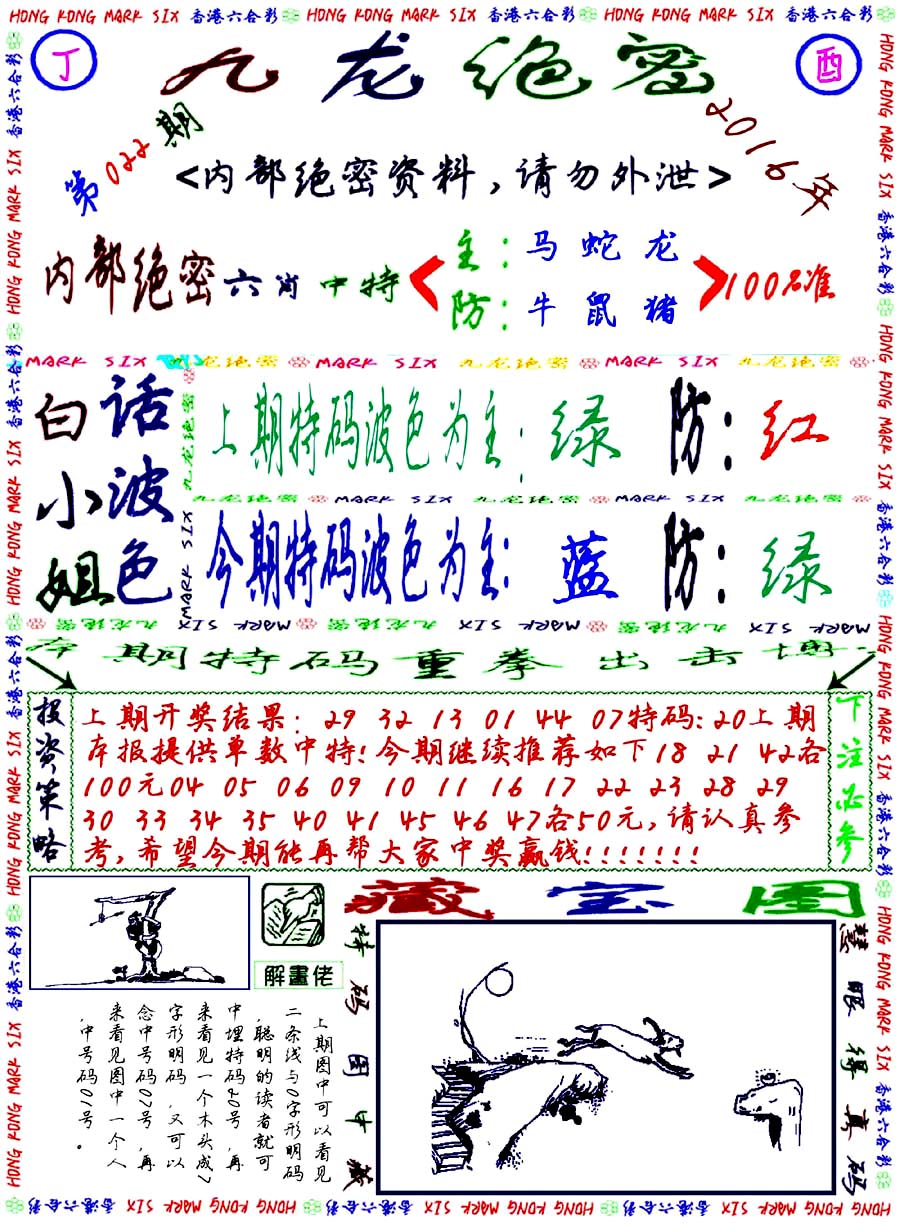 HONG KONG MARK SIX 香港六合彩 HONG KONG MARK SIX 香港六合彩 HONG KONG MARK SIX 香港六合彩
丁 九龙绝密 酉
第022期 2016年
<内部绝密资料,请勿外泄>
内部绝密六肖中特
主:马 蛇 龙
防:牛 鼠 猪
100%准
MARK SIX 九龙绝密 MARK SIX 九龙绝密 MARK SIX 九龙绝密
白小姐
话波色
上期特码波色为主:绿 防:红
九龙绝密 MARK SIX 九龙绝密 MARK SIX 九龙绝密
今期特码波色为主:蓝 防:绿
九龙绝密 MARK SIX 九龙绝密 MARK SIX 九龙绝密 MARK SIX
本期特码重拳出击博
投资策略
上期开奖结果: 29 32 13 01 44 07特码:20上期
本报提供单数中特!今期继续推荐如下18 21 42各
100元04 05 06 09 10 11 16 17 22 23 28 29
30 33 34 35 40 41 45 46 47各50元,请认真参
考,希望今期能再帮大家中奖赢钱!!!!!!!
下注必参
藏宝图
解畫佬
特码图中藏
慧眼得真码
上期图中可以看见
二条线与0字形明码
,聪明的读者就可
中埋特码20号,再
来看见一个木头成7
字形明码,又可以
念中号码07号,再
来看见图中一个人
,中号码01号。
HONG KONG MARK SIX 香港六合彩 HONG KONG MARK SIX 香港六合彩 HONG KONG MARK SIX 香港六合彩